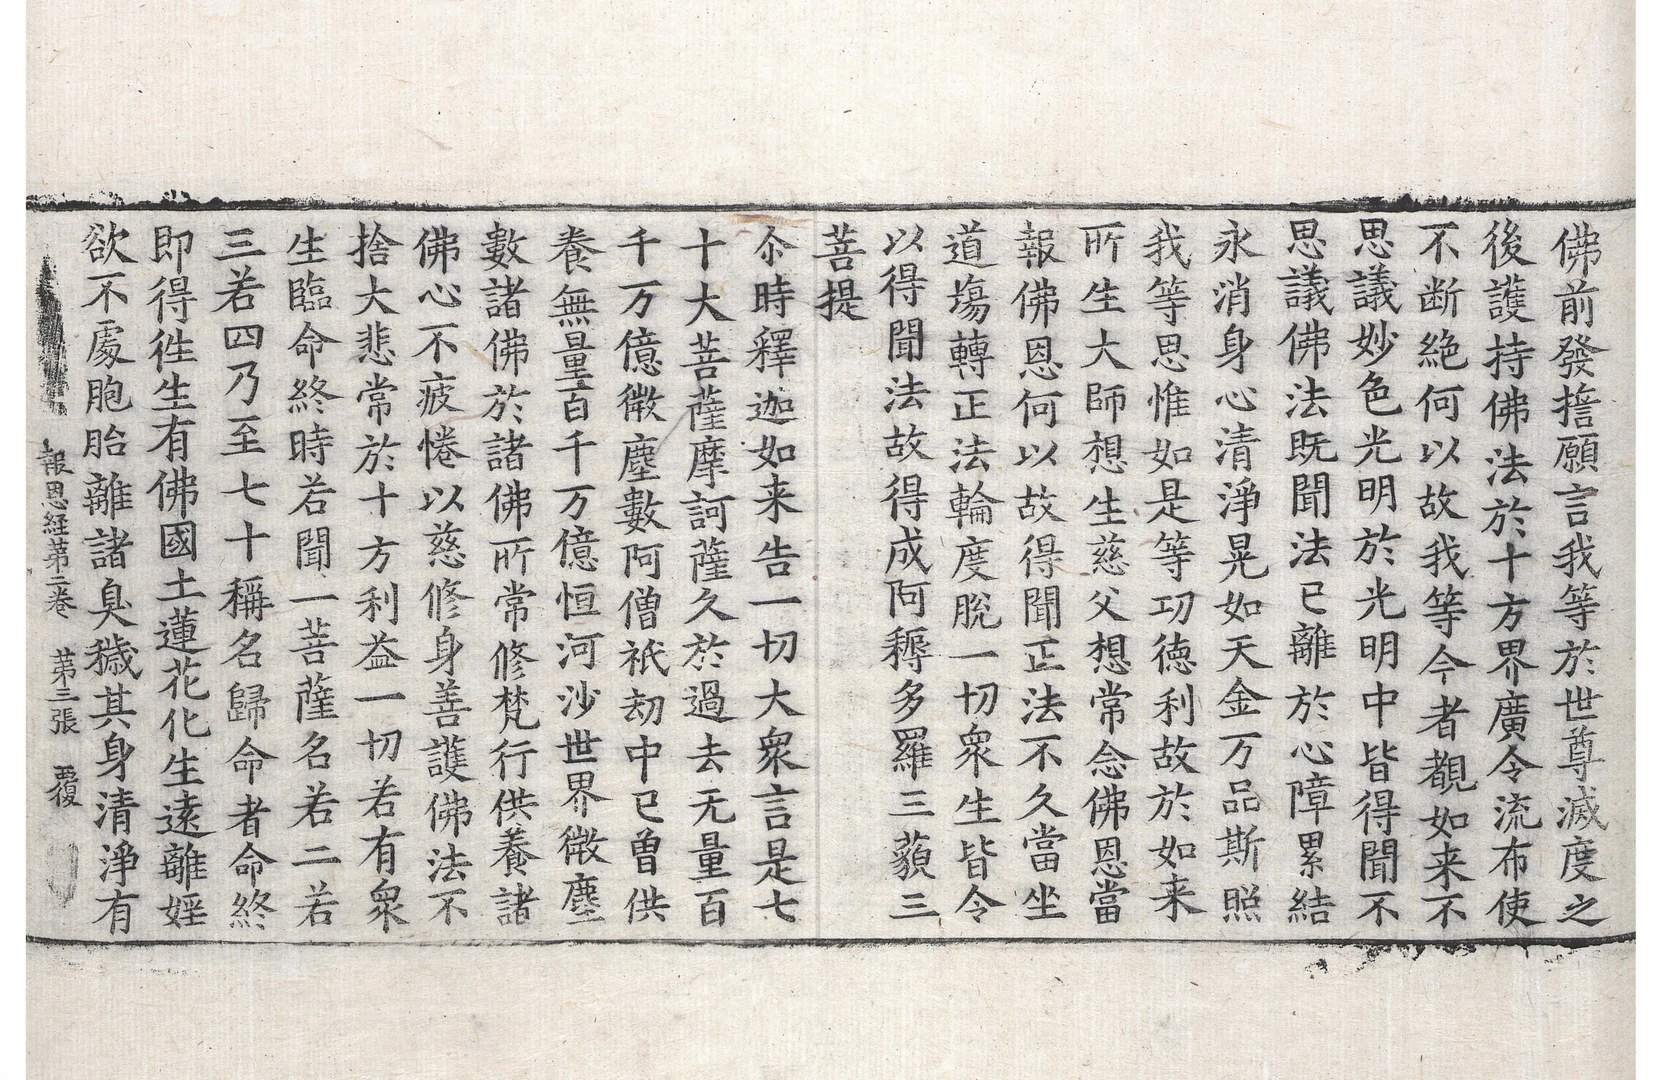 佛前發擔願言我等於世尊滅度之
後護持佛法於十方界廣令流布使
不断絶何以故我等今者覩如来不
思議妙色光明於光明中皆得聞不
思議佛法既聞法已離於心障累結
永消身心清淨晃如天金万品斯照
我等思惟如是等㓛德利故於如来
所生大師想生慈父想常念佛恩當
報佛恩何以故得聞正法不久當坐
道塲轉正法輪度脫一切衆生皆令
以得聞法故得成阿耨多羅三藐三
菩提
尒時釋迦如来告一切大衆言是七
十大菩薩摩訶薩久於過去无量百
千万億微塵數阿僧祇劫中已曽供
養無量百千万億恒河沙世界微塵
數諸佛於諸佛所常修梵行供養諸
佛心不疲惓以慈修身善護佛法不
捨大悲常於十方利益一切若有衆
生臨命終時若聞一菩薩名若二若
三若四乃至七十稱名歸命者命終
即得徃生有佛國土蓮花化生遠離婬
欲不處胞胎離諸臭穢其身清淨有
報恩経第二卷 第三張 覆